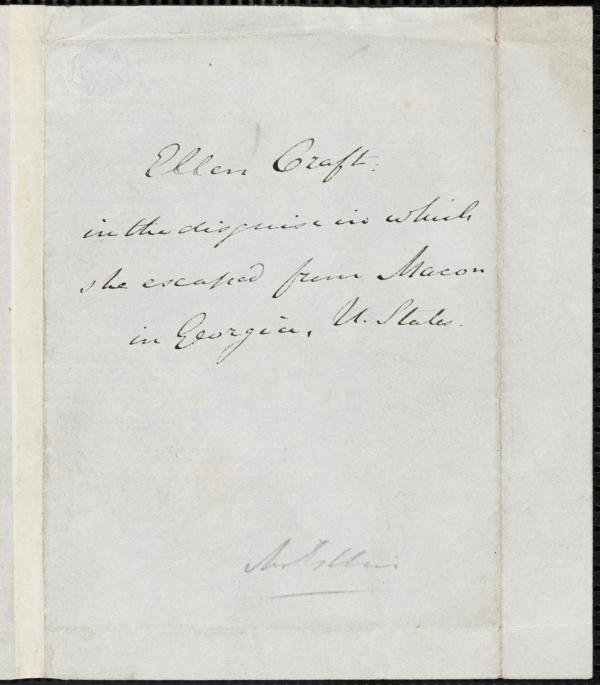 Ellen Craft.
in the disguise in which
she escaped from Macon
in Georgia, U. States.